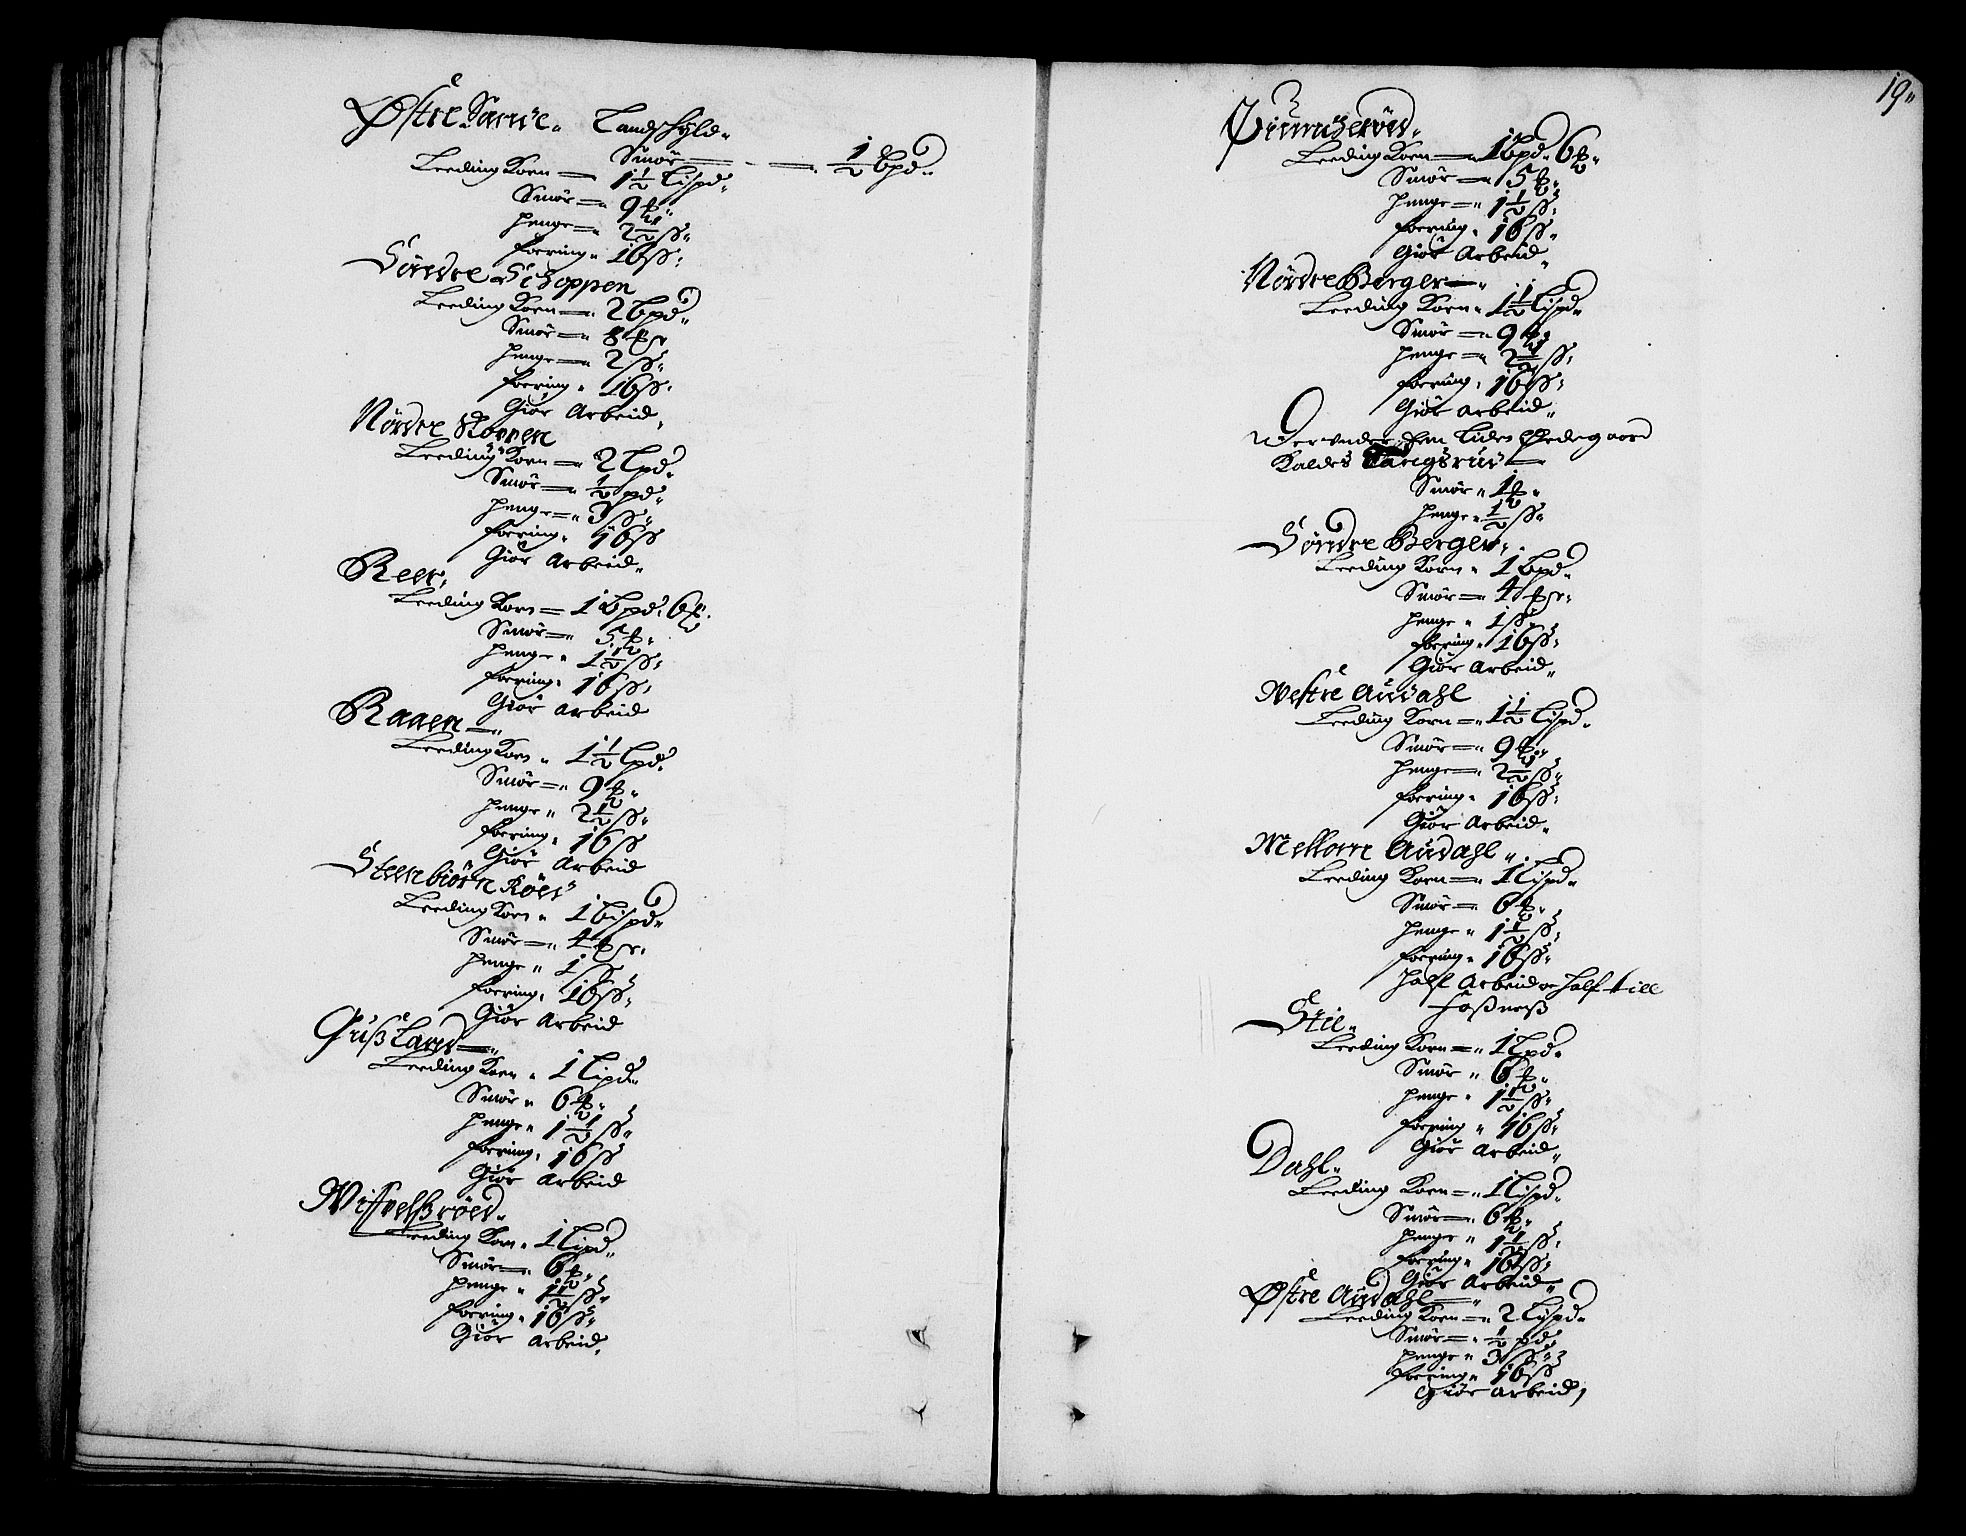 Østre Sande. Landschyld.
Smör — . — . 1/2 Bpd.
Leeding Korn — 1 1/2 Lispd.
Smör — 9 ℔.
Penge — 2 1/2 ss.
foering. 16 ss.
Söndre Schoppen
Leeding Korn — 2 Bpd.
Smör — 8 mkr
Penge — 2 ss.
foering. 16 ss.
Giör Arbeid.
Nördre Skoppen
Leeding Korn — 2 Lpd.
Smör — 1/2 pd.
Penge — 3 ss.
foering. 16 ss
Giör Arbeid.
Reer.
Leeding Korn — 1 Bpd. 6 ℔.
Smör — 5 ℔.
Penge. 1 1/2 ss.
foering. 16 ss.
Giör Arbeid
Raaen —
Leeding Korn. 1 1/2 Lpd.
Smör — 9 ℔.
Penge. 2 1/2 ss.
foering. 16 ss
Giör Arbeid
Steenbiörn Röed
Leeding Korn. 1 Bispd.
Smör — 4 mkr.
Penge. 1 ss
foering. 16 ss.
Giör Arbeid
Gußland —
Leeding Korn. 1 Lipd.
Smör. 6 ℔.
Penge. 1 1/2 ss.
foering. 16 ss
Giör Arbeid
Leeding Korn. 1 Lipd.
Smör — 6 ℔.
Penge. 1 1/2 ss.
foering. 16 ss.
Giör Arbeid.
19.
Leeding Korn — 1 Bpd. 6 ℔.
Smör — 5 ℔.
Penge — 1 1/2 ss.
foering. 16 ss.
Giör Arbeid.
Nördre Berger —
Leeding Korn. 1 1/2 Lispd.
Smör — 9 ℔.
Penge — 2 1/2 ss.
foering. 16 ss.
Giör Arbeid.
Der under een Liden Ødegaard
Kaldes
Smör. 1 ℔.
Penge. 1/2 ss.
Söndre Berger.
Leeding Korn. 1 Bpd.
Smör — 4 mkr.
Penge. 1 ss.
foering. 16 ss.
Giör Arbeid.
Westre Audahl
Leeding Korn — 1 1/2 Lispd.
Smör — 9 ℔.
Penge — 2 1/2 ss.
foering. 16 ss.
Giör Arbeid.
Mellom Audahl.
Leeding Korn — 1 Lispd.
Smör — 6 ℔.
Penge. 1 1/2 ss.
foering. 16 ss.
half Arbeid oc half till
Foßneß
Stie.
Leeding Korn — 1 Lpd.
Smör. 6 ℔.
Penge. 1 1/2 ss.
foering. 16 ss.
Giör Arbeid.
Dahl.
Leeding Korn — 1 Lispd.
Smör — 6 ℔.
Penge. 1 1/2 ss.
foering. 16 ss.
Giör Arbeid.
Østre Audahl —
Leeding Korn — 2 Lispd.
Smör — 1/2 pd.
Penge. 3 ss.
foering. 16 ss
Giör Arbeid,